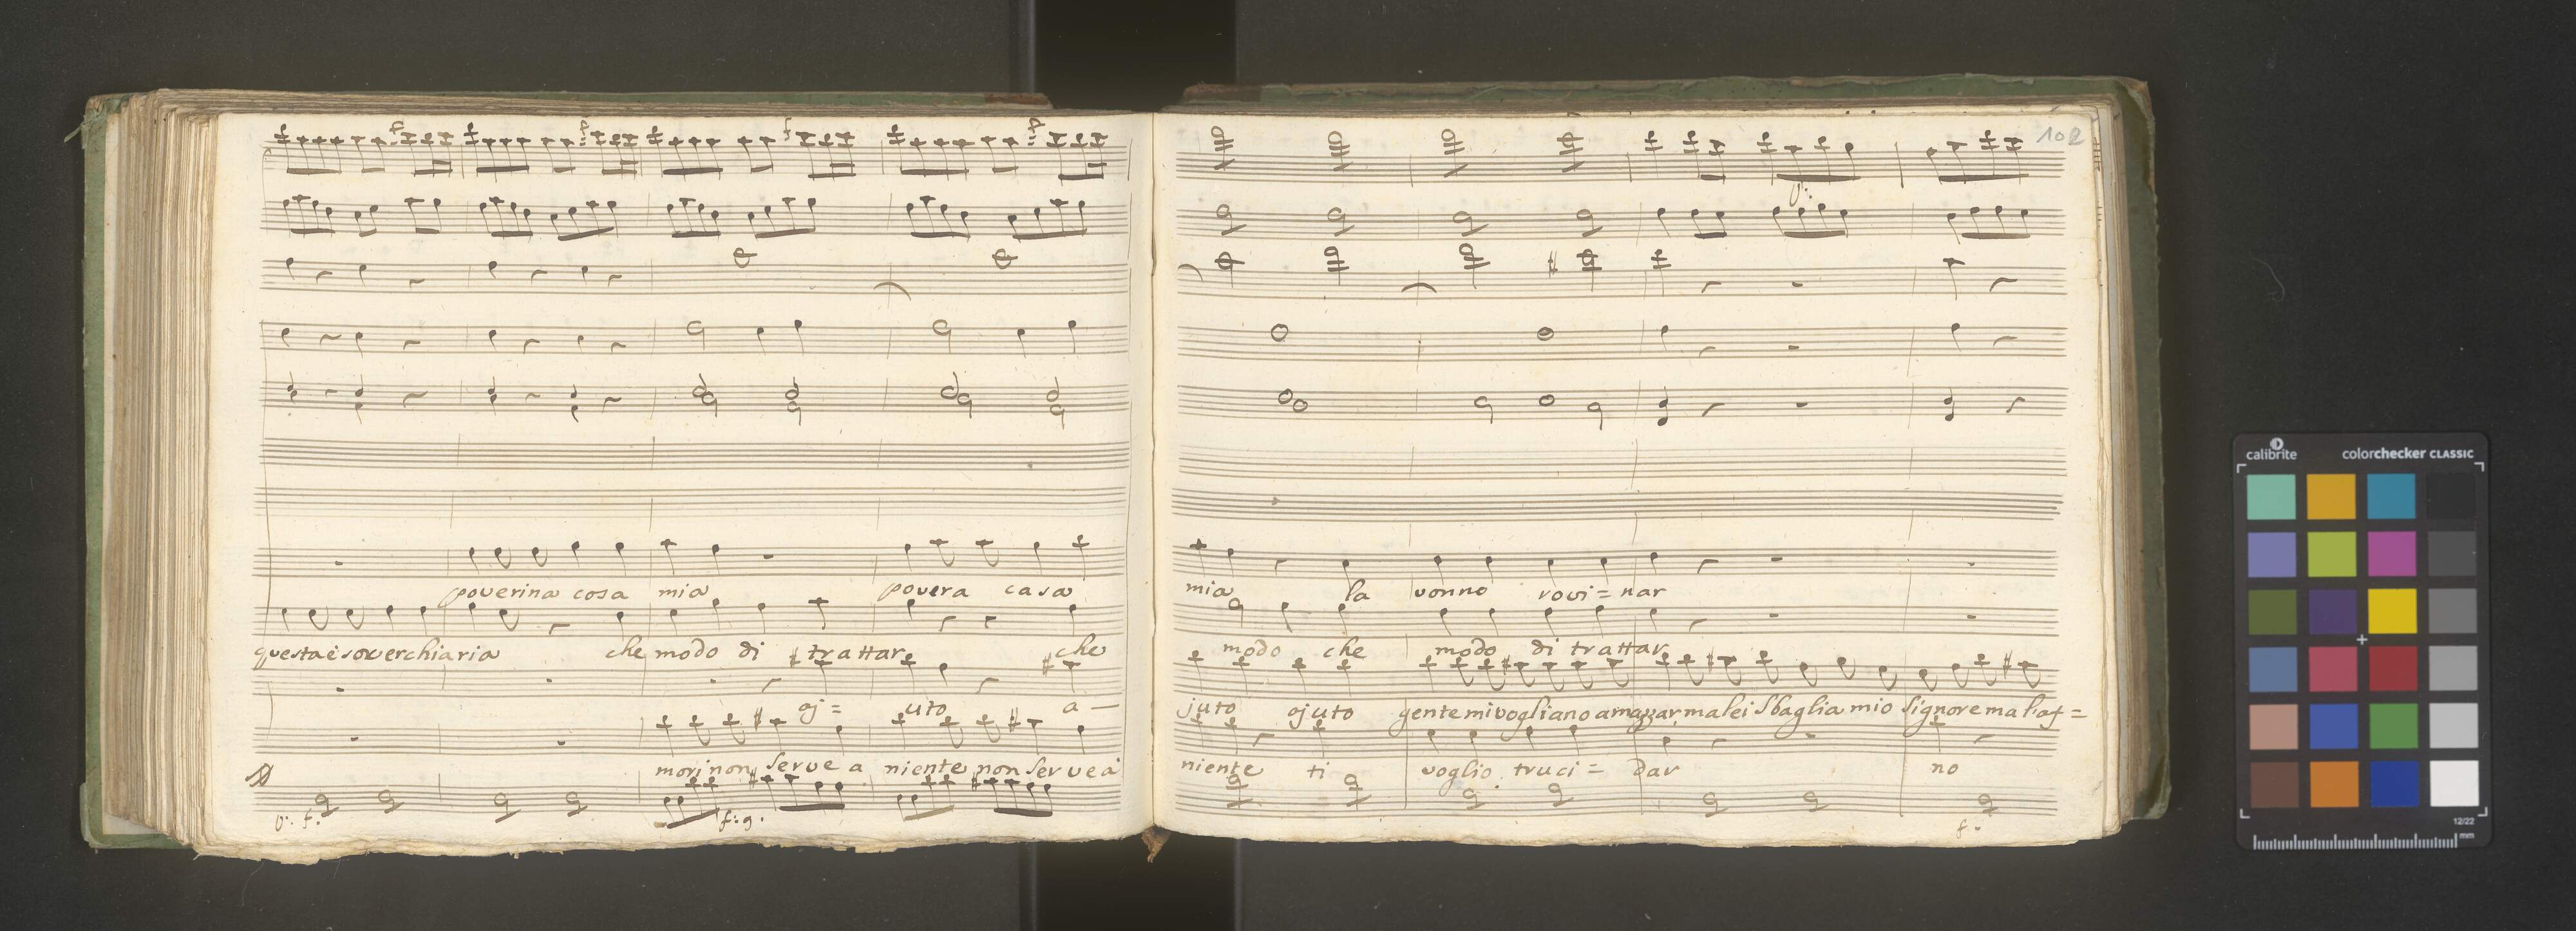 poverina cosa mia povera casa
questa è soverchiaria che modo di trattar che
aj= uto a—
mori non serve a niente non serve a
v: f: f: g.
102
mia la vonno rovi=nar
modo che modo di trattar
juto ajuto gente mi vogliano amazar ma lei sbaglia mio signore ma l'af=
niente ti voglio truci= dar no
f.
calibrite colorchecker CLASSIC
12/22
mm